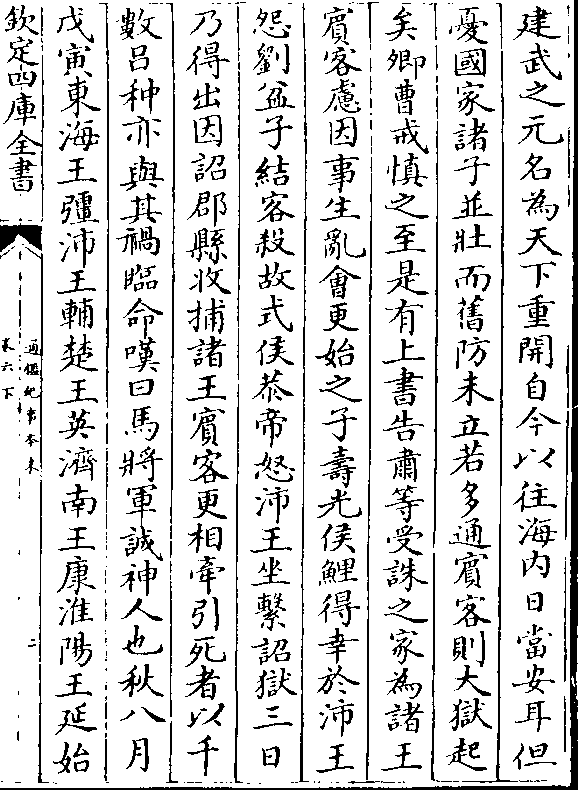 建武之元名為天下重開自今以往海内日當安耳但
憂國家諸子並壯而舊防未立若多通賓客則大獄起
矣卿曹戒慎之至是有上書告肅等受誅之家為諸王
賓客慮因事生亂會更始之子壽光侯鯉得幸於沛王
怨劉盆子結客殺故式侯恭帝怒沛王坐繫詔獄三日
乃得出因詔郡縣收捕諸王賓客更相牽引死者以千
數吕种亦與其禍臨命嘆曰馬將軍誠神人也秋八月
戊寅東海王彊沛王輔楚王英濟南王康淮陽王延始
欽定四庫全書
通鑑紀事本末
卷六下
二